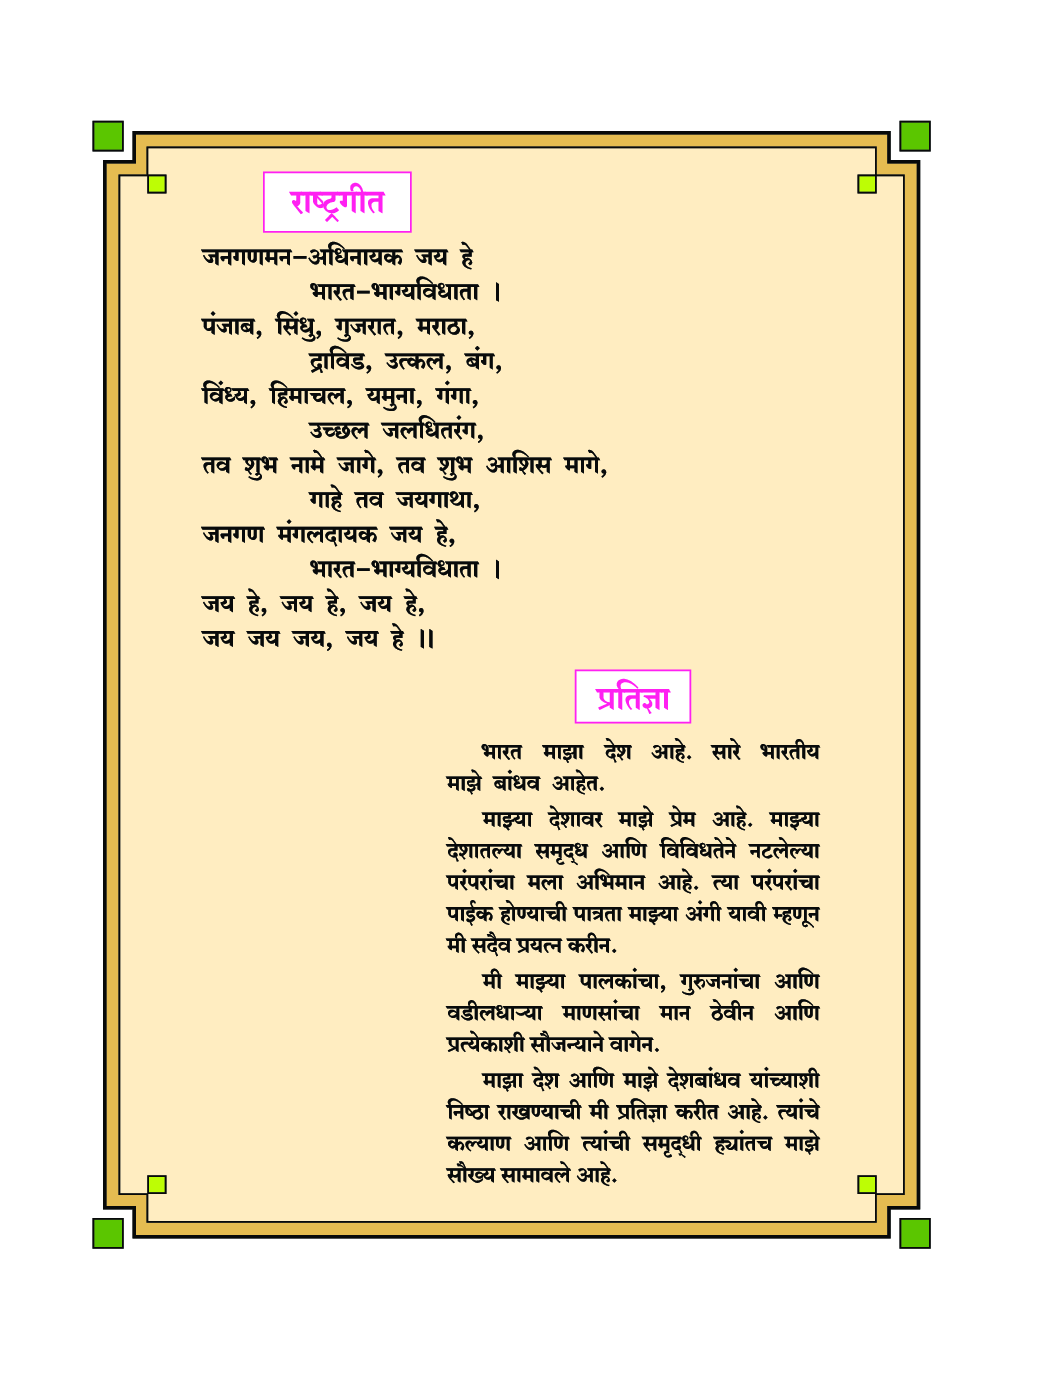 राष्ट्रगीत
जनगणमन–अधिनायक जय हे
भारत–भाग्यविधाता ।
पंजाब, सिंधु, गुजरात, मराठा,
द्राविड, उत्कल, बंग,
विंध्य, हिमाचल, यमुना, गंगा,
उच्छल जलधितरंग,
तव शुभ नामे जागे, तव शुभ आशिस मागे,
गाहे तव जयगाथा,
जनगण मंगलदायक जय हे,
भारत–भाग्यविधाता ।
जय हे, जय हे, जय हे,
जय जय जय, जय हे ।।
प्रतिज्ञा
भारत माझा देश आहे. सारे भारतीय
माझे बांधव आहेत.
माझ्या देशावर माझे प्रेम आहे. माझ्या
देशातल्या समृद्ध आणि विविधतेने नटलेल्या
परंपरांचा मला अभिमान आहे. त्या परंपरांचा
पाईक होण्याची पात्रता माझ्या अंगी यावी म्हणून
मी सदैव प्रयत्न करीन.
मी माझ्या पालकांचा, गुरुजनांचा आणि
वडीलधाऱ्या माणसांचा मान ठेवीन आणि
प्रत्येकाशी सौजन्याने वागेन.
माझा देश आणि माझे देशबांधव यांच्याशी
निष्ठा राखण्याची मी प्रतिज्ञा करीत आहे. त्यांचे
कल्याण आणि त्यांची समृद्धी ह्यांतच माझे
सौख्य सामावले आहे.